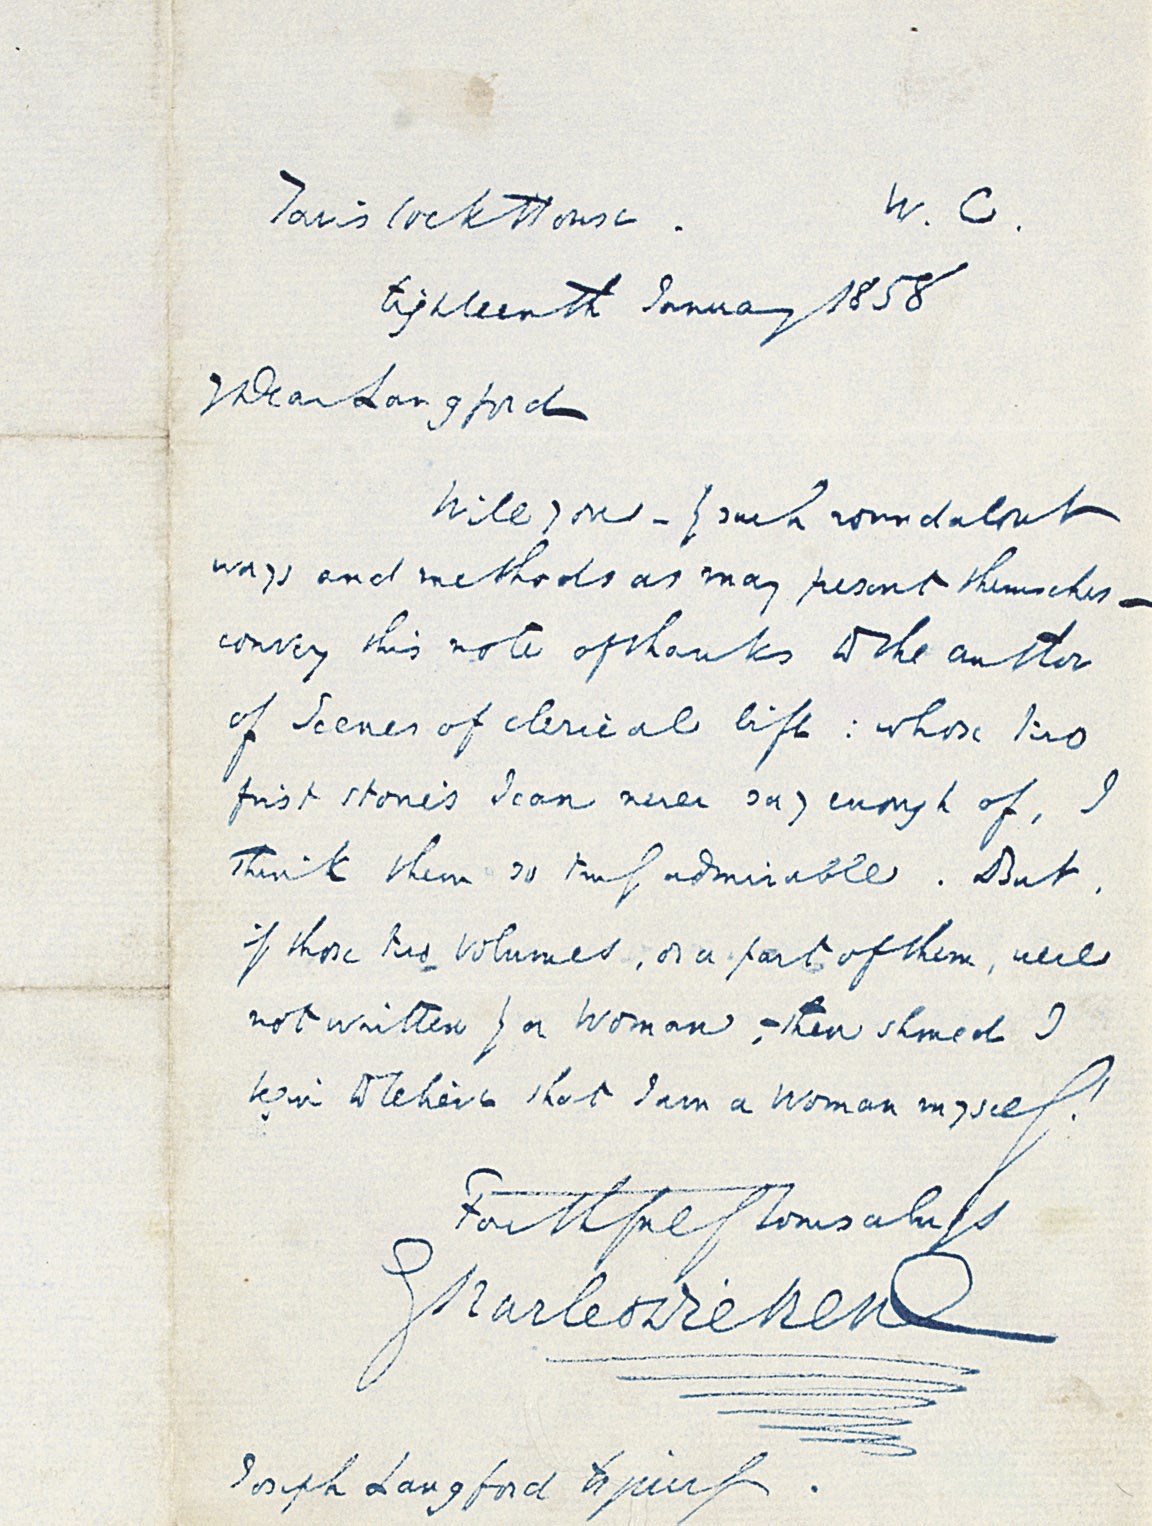 Tavistock House. W. C.
Eighteenth January 1858
My Dear Langford
Will you – by such roundabout
ways and methods as may present themselves –
convey this note of thanks to the author
of Scenes of Clerical Life: whose two
first stories I can never say enough of, I
think them so truly admirable. But,
if those two volumes, or a part of them, were
not written by a Woman, – then should I
begin to believe that I am a Woman myself!
Faithfully Yours always
Charles Dickens
Joseph Langford Esquire.